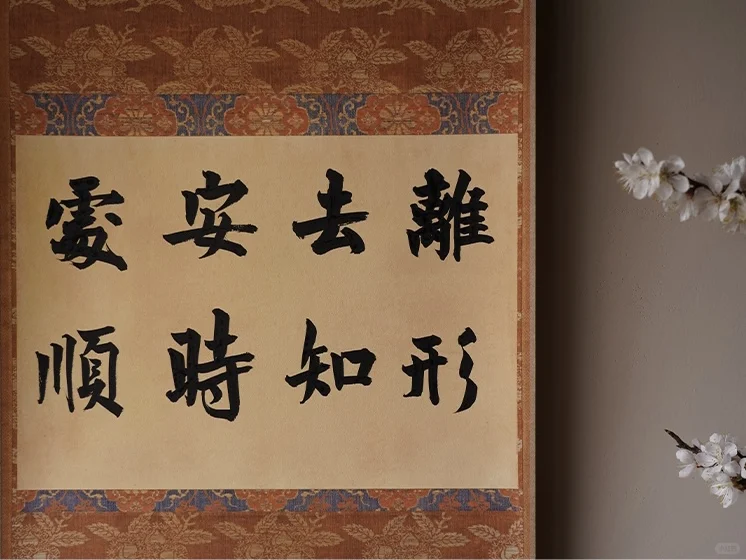 離形
去知
安時
處順